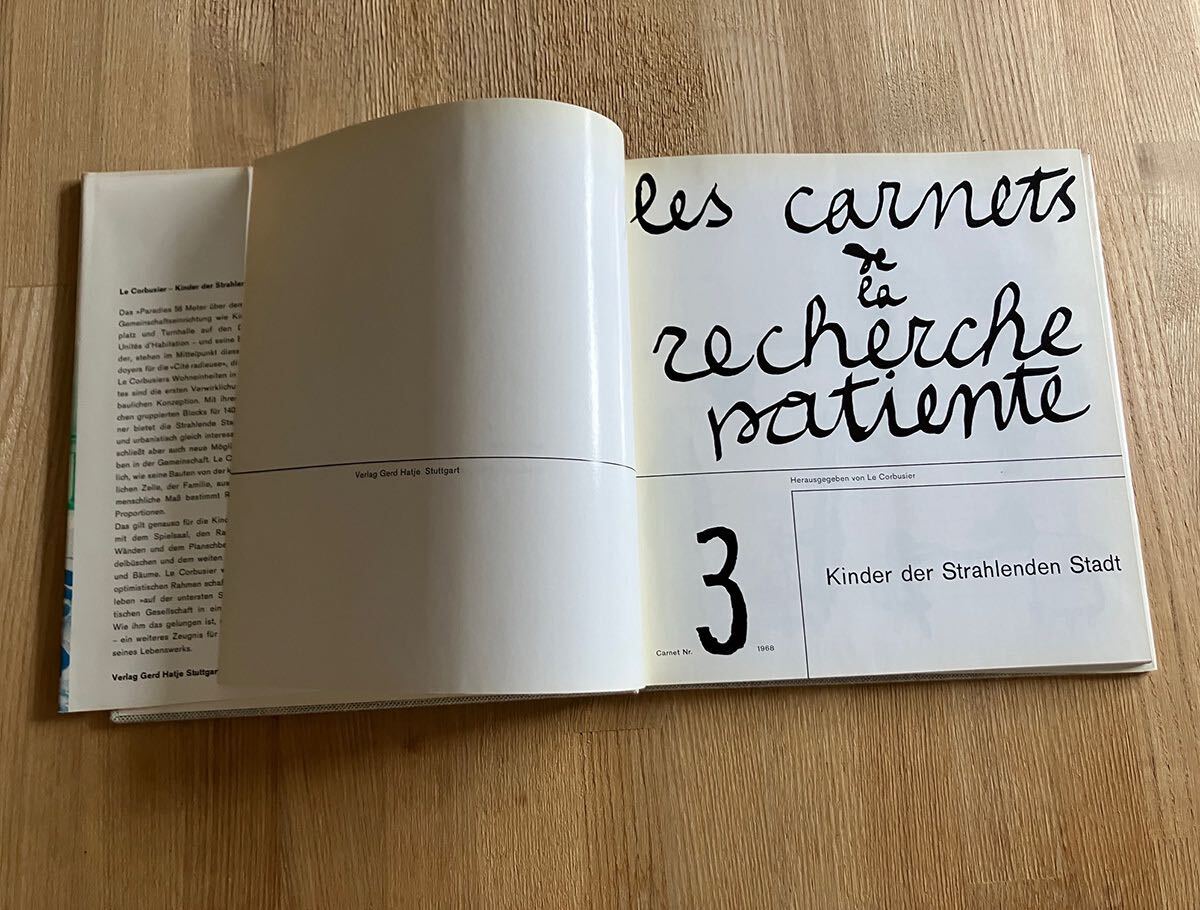 Le Corbusier – Kinder der Strahlen
Das »Paradies 56 Meter über dem
Gemeinschaftseinrichtung wie Ki
platz und Turnhalle auf den D
Unités d'Habitation – und seine B
der, stehen im Mittelpunkt diese
doyers für die »Cité radieuse«, di
Le Corbusiers Wohneinheiten in
tes sind die ersten Verwirklichu
baulichen Konzeption. Mit ihre
chen gruppierten Blocks für 140
ner bietet die Strahlende Sta
und urbanistisch gleich interess
schließt aber auch neue Mögli
ben in der Gemeinschaft. Le C
lich, wie seine Bauten von der k
lichen Zelle, der Familie, aus
menschliche Maß bestimmt R
Proportionen.
Das gilt genauso für die Kind
mit dem Spielsaal, den Ra
Wänden und dem Planschbe
delbüschen und dem weiten
und Bäume. Le Corbusier v
optimistischen Rahmen schaf
leben »auf der untersten S
tischen Gesellschaft in ein
Wie ihm das gelungen ist,
– ein weiteres Zeugnis für
seines Lebenswerks.
Verlag Gerd Hatje Stuttgar
Verlag Gerd Hatje Stuttgart
les carnets
de
la
recherche
patiente
Herausgegeben von Le Corbusier
Carnet Nr. 3 1968
Kinder der Strahlenden Stadt